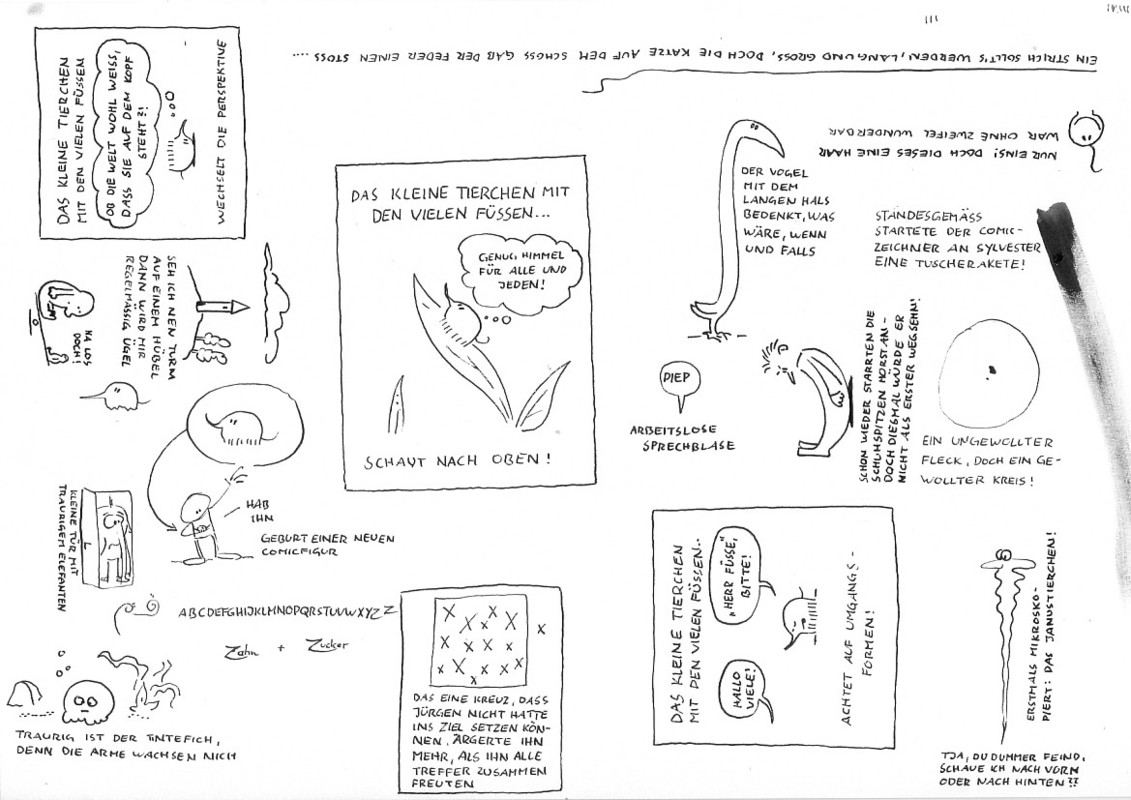 EIN STRICH SOLLT'S WERDEN, LANG UND GROSS, DOCH DIE KATZE AUF DEM SCHOSS GAB DER FEDER EINEN STOSS ....
DAS KLEINE TIERCHEN
MIT DEN VIELEN FÜSSEN
OB DIE WELT WOHL WEISS,
DASS SIE AUF DEM KOPF
STEHT?!
WECHSELT DIE PERSPEKTIVE
NUR EINS! DOCH DIESES EINE HAAR
WAR OHNE ZWEIFEL WUNDERBAR
DAS KLEINE TIERCHEN MIT
DEN VIELEN FÜSSEN...
GENUG HIMMEL
FÜR ALLE UND
JEDEN!
SCHAUT NACH OBEN!
DER VOGEL
MIT DEM
LANGEN HALS
BEDENKT, WAS
WÄRE, WENN
UND FALLS
STANDESGEMÄSS
STARTETE DER COMIC-
ZEICHNER AN SYLVESTER
EINE TUSCHERAKETE!
SEH ICH NEN TURM
AUF EINEM HÜGEL
DANN WIRD MIR
REGELMÄSSIG ÜGEL
NA LOS
DOCH!
PIEP
ARBEITSLOSE
SPRECHBLASE
SCHON WIEDER STARRTEN DIE
SCHUHSPITZEN HORST AN -
DOCH DIESMAL WÜRDE ER
NICHT ALS ERSTER WEGSEHN!
EIN UNGEWOLLTER
FLECK, DOCH EIN GE-
WOLLTER KREIS!
HAB
IHN
GEBURT EINER NEUEN
COMICFIGUR
KLEINE TÜR MIT
TRAURIGEM ELEFANTEN
ABCDEFGHIJKLMNOPQRSTUVWXYZ Z
Zahn + Zucker
TRAURIG IST DER TINTEFICH,
DENN DIE ARME WACHSEN NICH
DAS EINE KREUZ, DASS
JÜRGEN NICHT HATTE
INS ZIEL SETZEN KÖN-
NEN, ÄRGERTE IHN
MEHR, ALS IHN ALLE
TREFFER ZUSAMMEN
FREUTEN
DAS KLEINE TIERCHEN
MIT DEN VIELEN FÜSSEN..
"HERR FÜSSE,"
BITTE!
HALLO
VIELE!
ACHTET AUF UMGANGS-
FORMEN!
ERSTMALS MIKROSKO-
PIERT: DAS JANUSTIERCHEN!
TJA, DU DUMMER FEIND,
SCHAUE ICH NACH VORN
ODER NACH HINTEN??